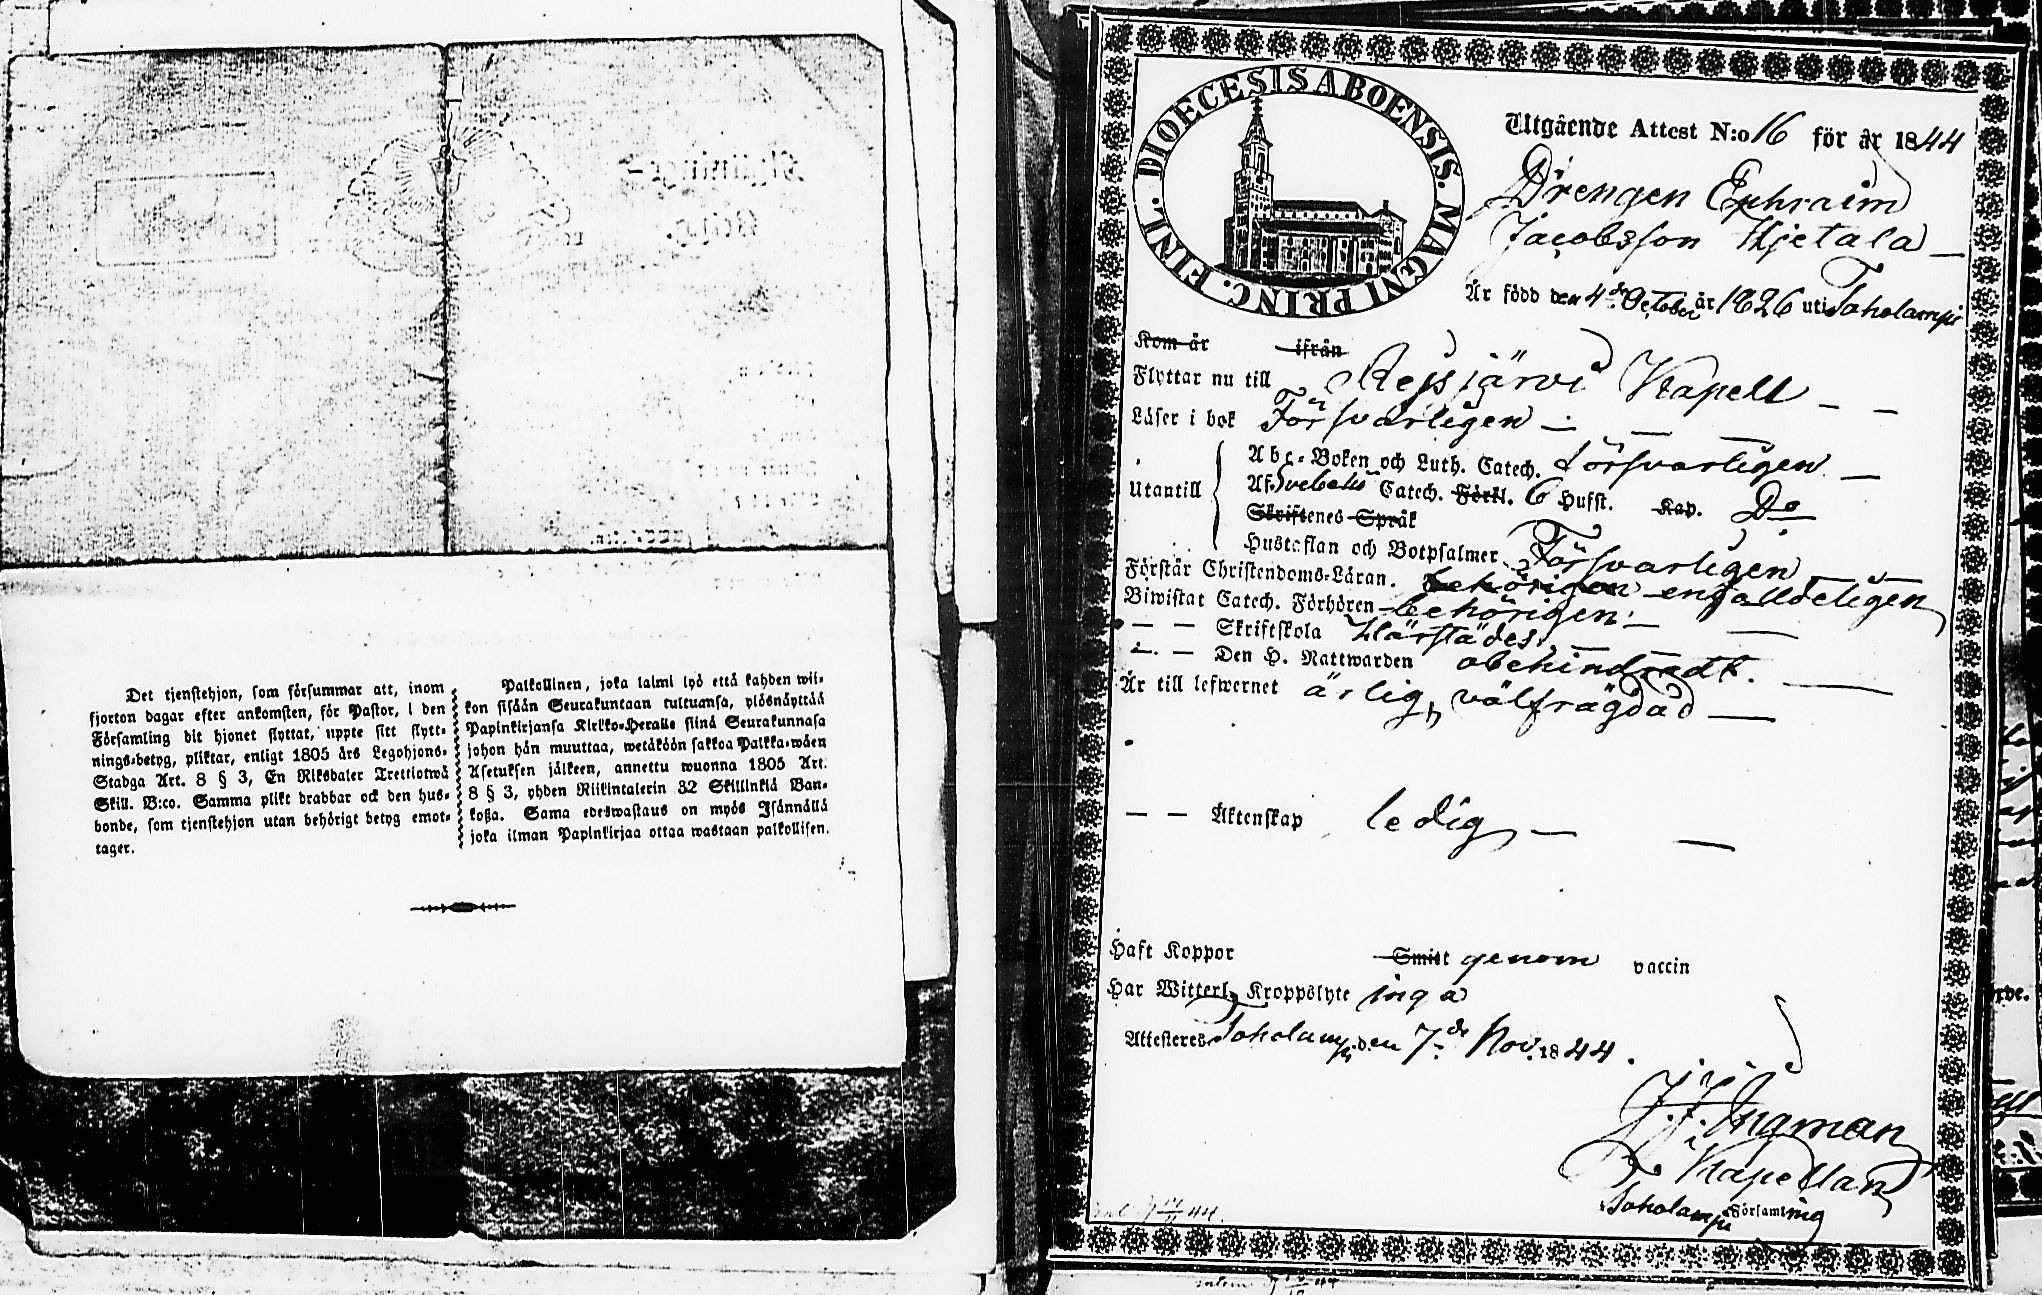 Det tjenstehjon, som försummar att, inom
fjorton dagar efter ankomsten, för Pastor, i den
Församling dit hjonet flyttat, uppte sitt flytt-
nings-betyg, pliktar, enligt 1805 års Legohjons-
Stadga Art. 8 § 3, En Riksdaler Trettiotwå
Skill. B:co. Samma plikt drabbar ock den hus-
bonde, som tjenstehjon utan behörigt betyg emot-
tager.
Palkollinen, joka laimi lyö että kahden wii-
kon sisään Seurakuntaan tultuansa, ylösnäyttää
Papinkirjansa Kirkko-Heralle siinä Seurakunnasa
johon hän muuttaa, wetäköön sakkoa Palkka-wäen
Asetuksen jälkeen, annettu wuonna 1805 Art.
8 § 3, yhden Riikintalerin 32 Skillinkiä Ban-
koßa. Sama edeswastaus on myös Isännällä
joka ilman Papinkirjaa ottaa wastaan palkollisen.
DIOECESIS ABOENSIS. MAGNI PRINC. FINL.
Utgående Attest N:o 16 för år 1844
Drengen Ephraim
Jacobsson Kjetala
Är född den 4de October år 1826 uti Toholampi
Kom år ifrån
Flyttar nu till Reisjärvi Kapell
Läser i bok Försvarligen
Abc-Boken och Luth. Catech. försvarligen
Utantill Af Svebelii Catech. Förkl. 6 Hufst. Kap. Do
Skriftenes Språk
Hustaflan och Botpsalmer Försvarligen
Förstår Christendoms-Läran. behörigen enfalldeligen
Biwistat Catech. Förhören behörigen
— — Skriftskola härstädes
— — Den H. Nattwarden obehindradt.
Är till lefwernet ärlig, välfrägdad
— — Äktenskap ledig
Haft Koppor Smitt genom vaccin
Har Witterl. Kroppslyte inga
Attesteres Toholampi den 7de Nov. 1844.
J. J. Ingman
Kapellan i
Toholampi Församling